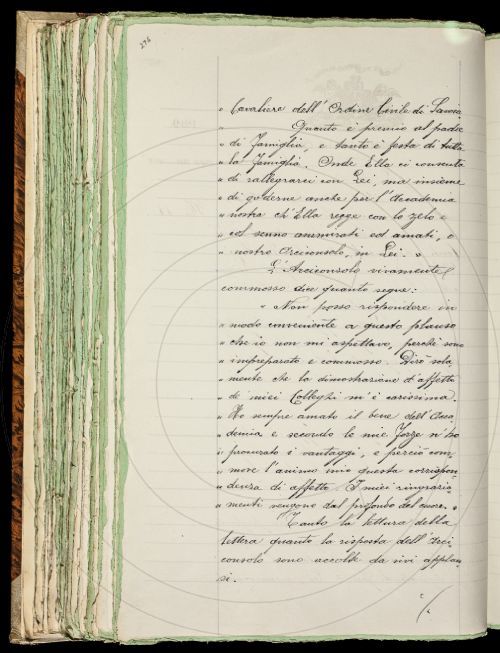 276
" Cavaliere dell'Ordine Civile di Savoia.
" Quanto è premio al padre
" di famiglia, e tanto è festa di tutta
" la famiglia. Onde Ella ci consenta
" di rallegrarci con Lei, ma insieme
" di goderne anche per l'Accademia
" nostra ch'Ella regge con lo zelo e
" col senno ammirati ed amati, o
" nostro Arciconsolo, in Lei. "
L'Arciconsolo vivamente
commosso dice quanto segue:
" Non posso rispondere in
" modo conveniente a questo plauso
" che io non mi aspettavo, perchè sono
" impreparato e commosso. Dirò sola
" mente che la dimostrazione d'affetto
" de' miei Colleghi m'è carissima.
" Ho sempre amato il bene dell'Acca
" demia e secondo le mie forze n'ho
" procurato i vantaggi, e perciò com
" move l'animo mio questa corrispon
" denza di affetto. I miei ringrazia
" menti vengono dal profondo del cuore. "
Tanto la lettura della
lettera quanto la risposta dell'Arci
consolo sono accolte da vivi applau
si.